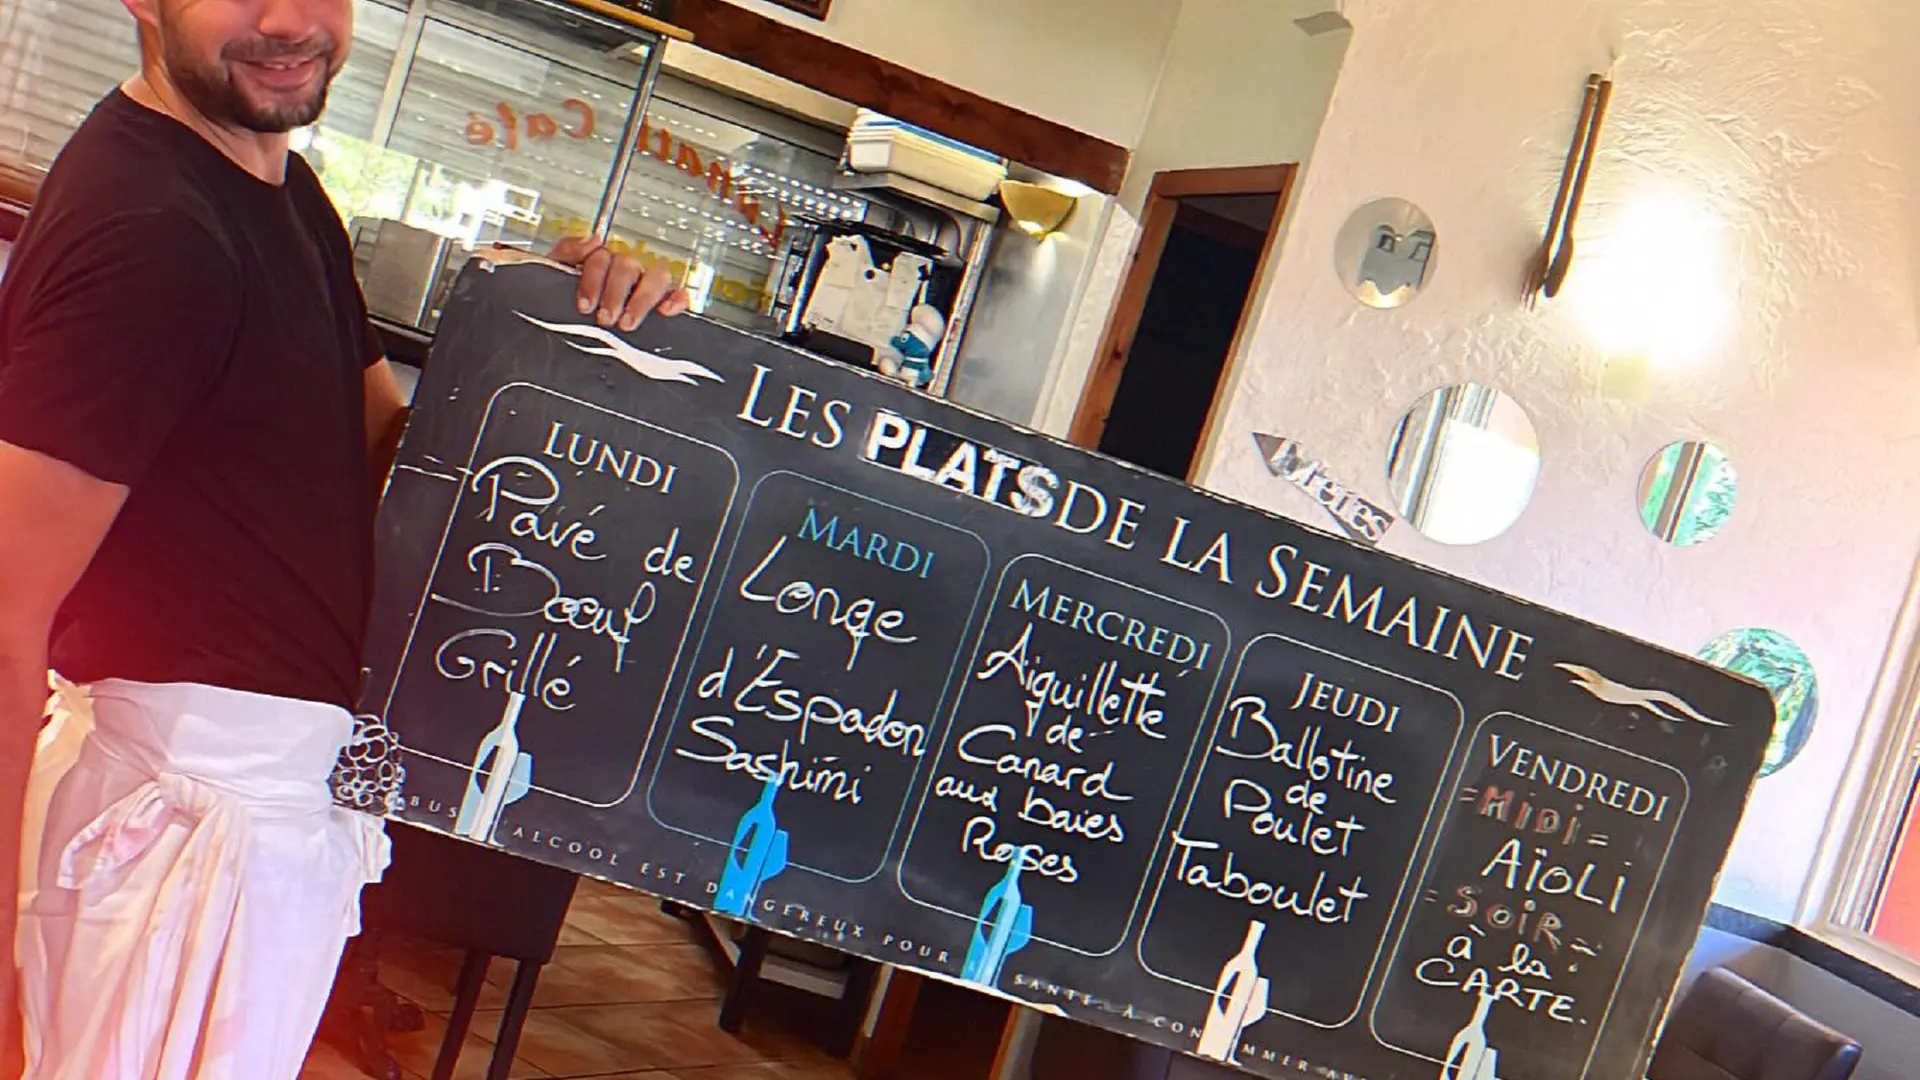 LES PLATS DE LA SEMAINE
LUNDI
Pavé de
Bœuf
Grillé
MARDI
Longe
d'Espadon
Sashimi
MERCREDI
Aiguillette
de
Canard
aux baies
Roses
JEUDI
Ballotine
de
Poulet
Taboulet
VENDREDI
=MIDI=
AÏOLI
=SOIR=
à la
CARTE.
BUS ALCOOL EST DANGEREUX POUR SANTÉ, À CON MMER AV
Café